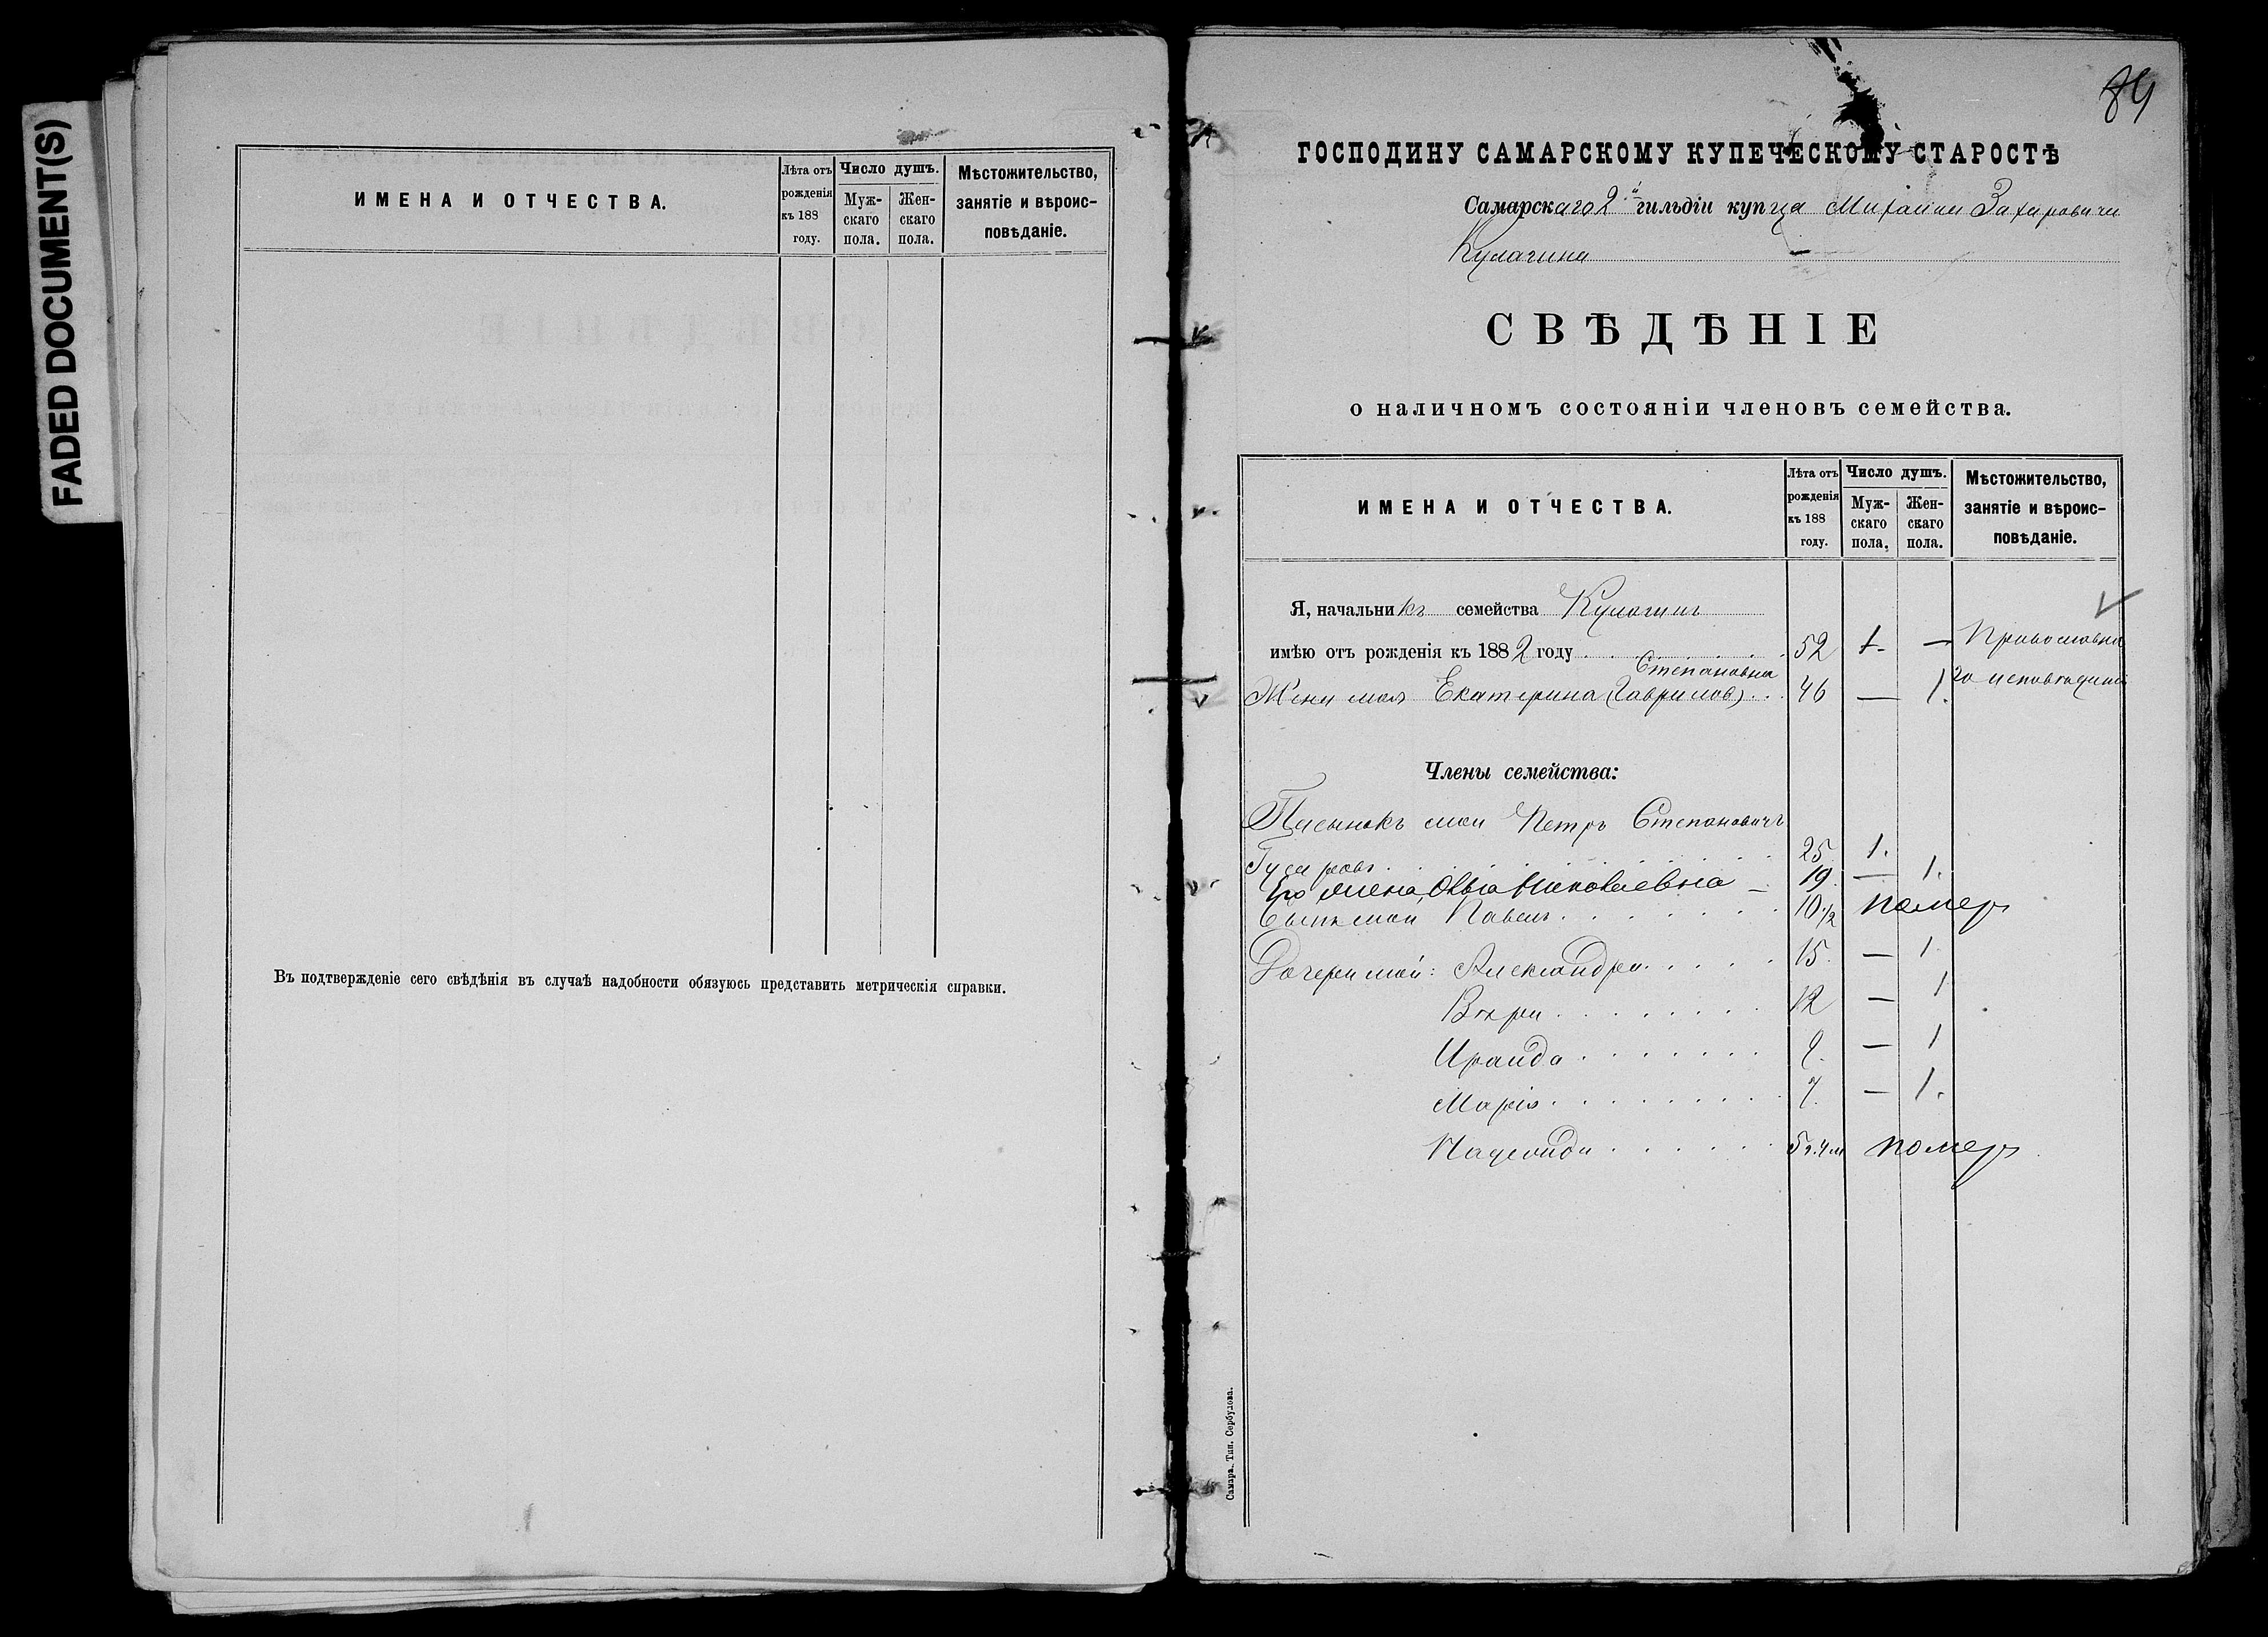 FADED DOCUMENT(S)
ИМЕНА И ОТЧЕСТВА.
Лѣта отъ рожденія къ 188 году.
Число душъ.
Муж-скаго пола.
Жен-скаго пола.
Мѣстожительство, занятіе и вѣроис-повѣданіе.
Въ подтвержденіе сего свѣдѣнія въ случаѣ надобности обязуюсь представить метрическія справки.
84
ГОСПОДИНУ САМАРСКОМУ КУПЕЧЕСКОМУ СТАРОСТѢ
Самарскаго 2й гильдіи купца Михаила Захаровича
Кулагина
СВѢДѢНІЕ
о наличномъ состояніи членовъ семейства.
ИМЕНА И ОТЧЕСТВА.
Лѣта отъ рожденія къ 188 году.
Число душъ.
Муж-скаго пола.
Жен-скаго пола.
Мѣстожительство, занятіе и вѣроис-повѣданіе.
Я, начальникъ семейства Кулагинъ
имѣю отъ рожденія къ 1882 году 52 1. — Православна
Степановна
Жена моя Екатерина (Гаврилов) 46 — 1. го исповѣданія
Члены семейства:
Пасынокъ мой Петръ Степановичъ
Гусаровъ 25 1.
Его жена Николаевна — 19. — 1.
Сынъ мой Павелъ 10 1/2 помер
Дочери мои: Александра 15. — 1
Вѣра 12 — 1
Ираида 9. — 1
Марія 7. — 1.
5 г. 4 м помер
Самара. Тип. Сербулова.